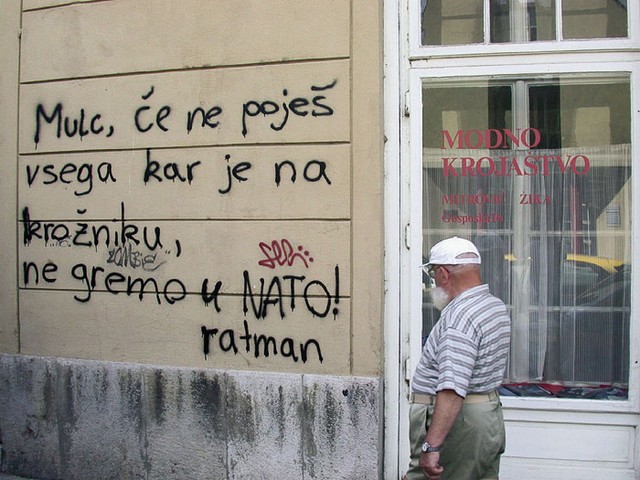 Mulc, če ne poješ
vsega kar je na
krožniku,
ne gremo u NATO!
ratman
MODNO
KROJAŠTVO
ŽIKA
Gosposka